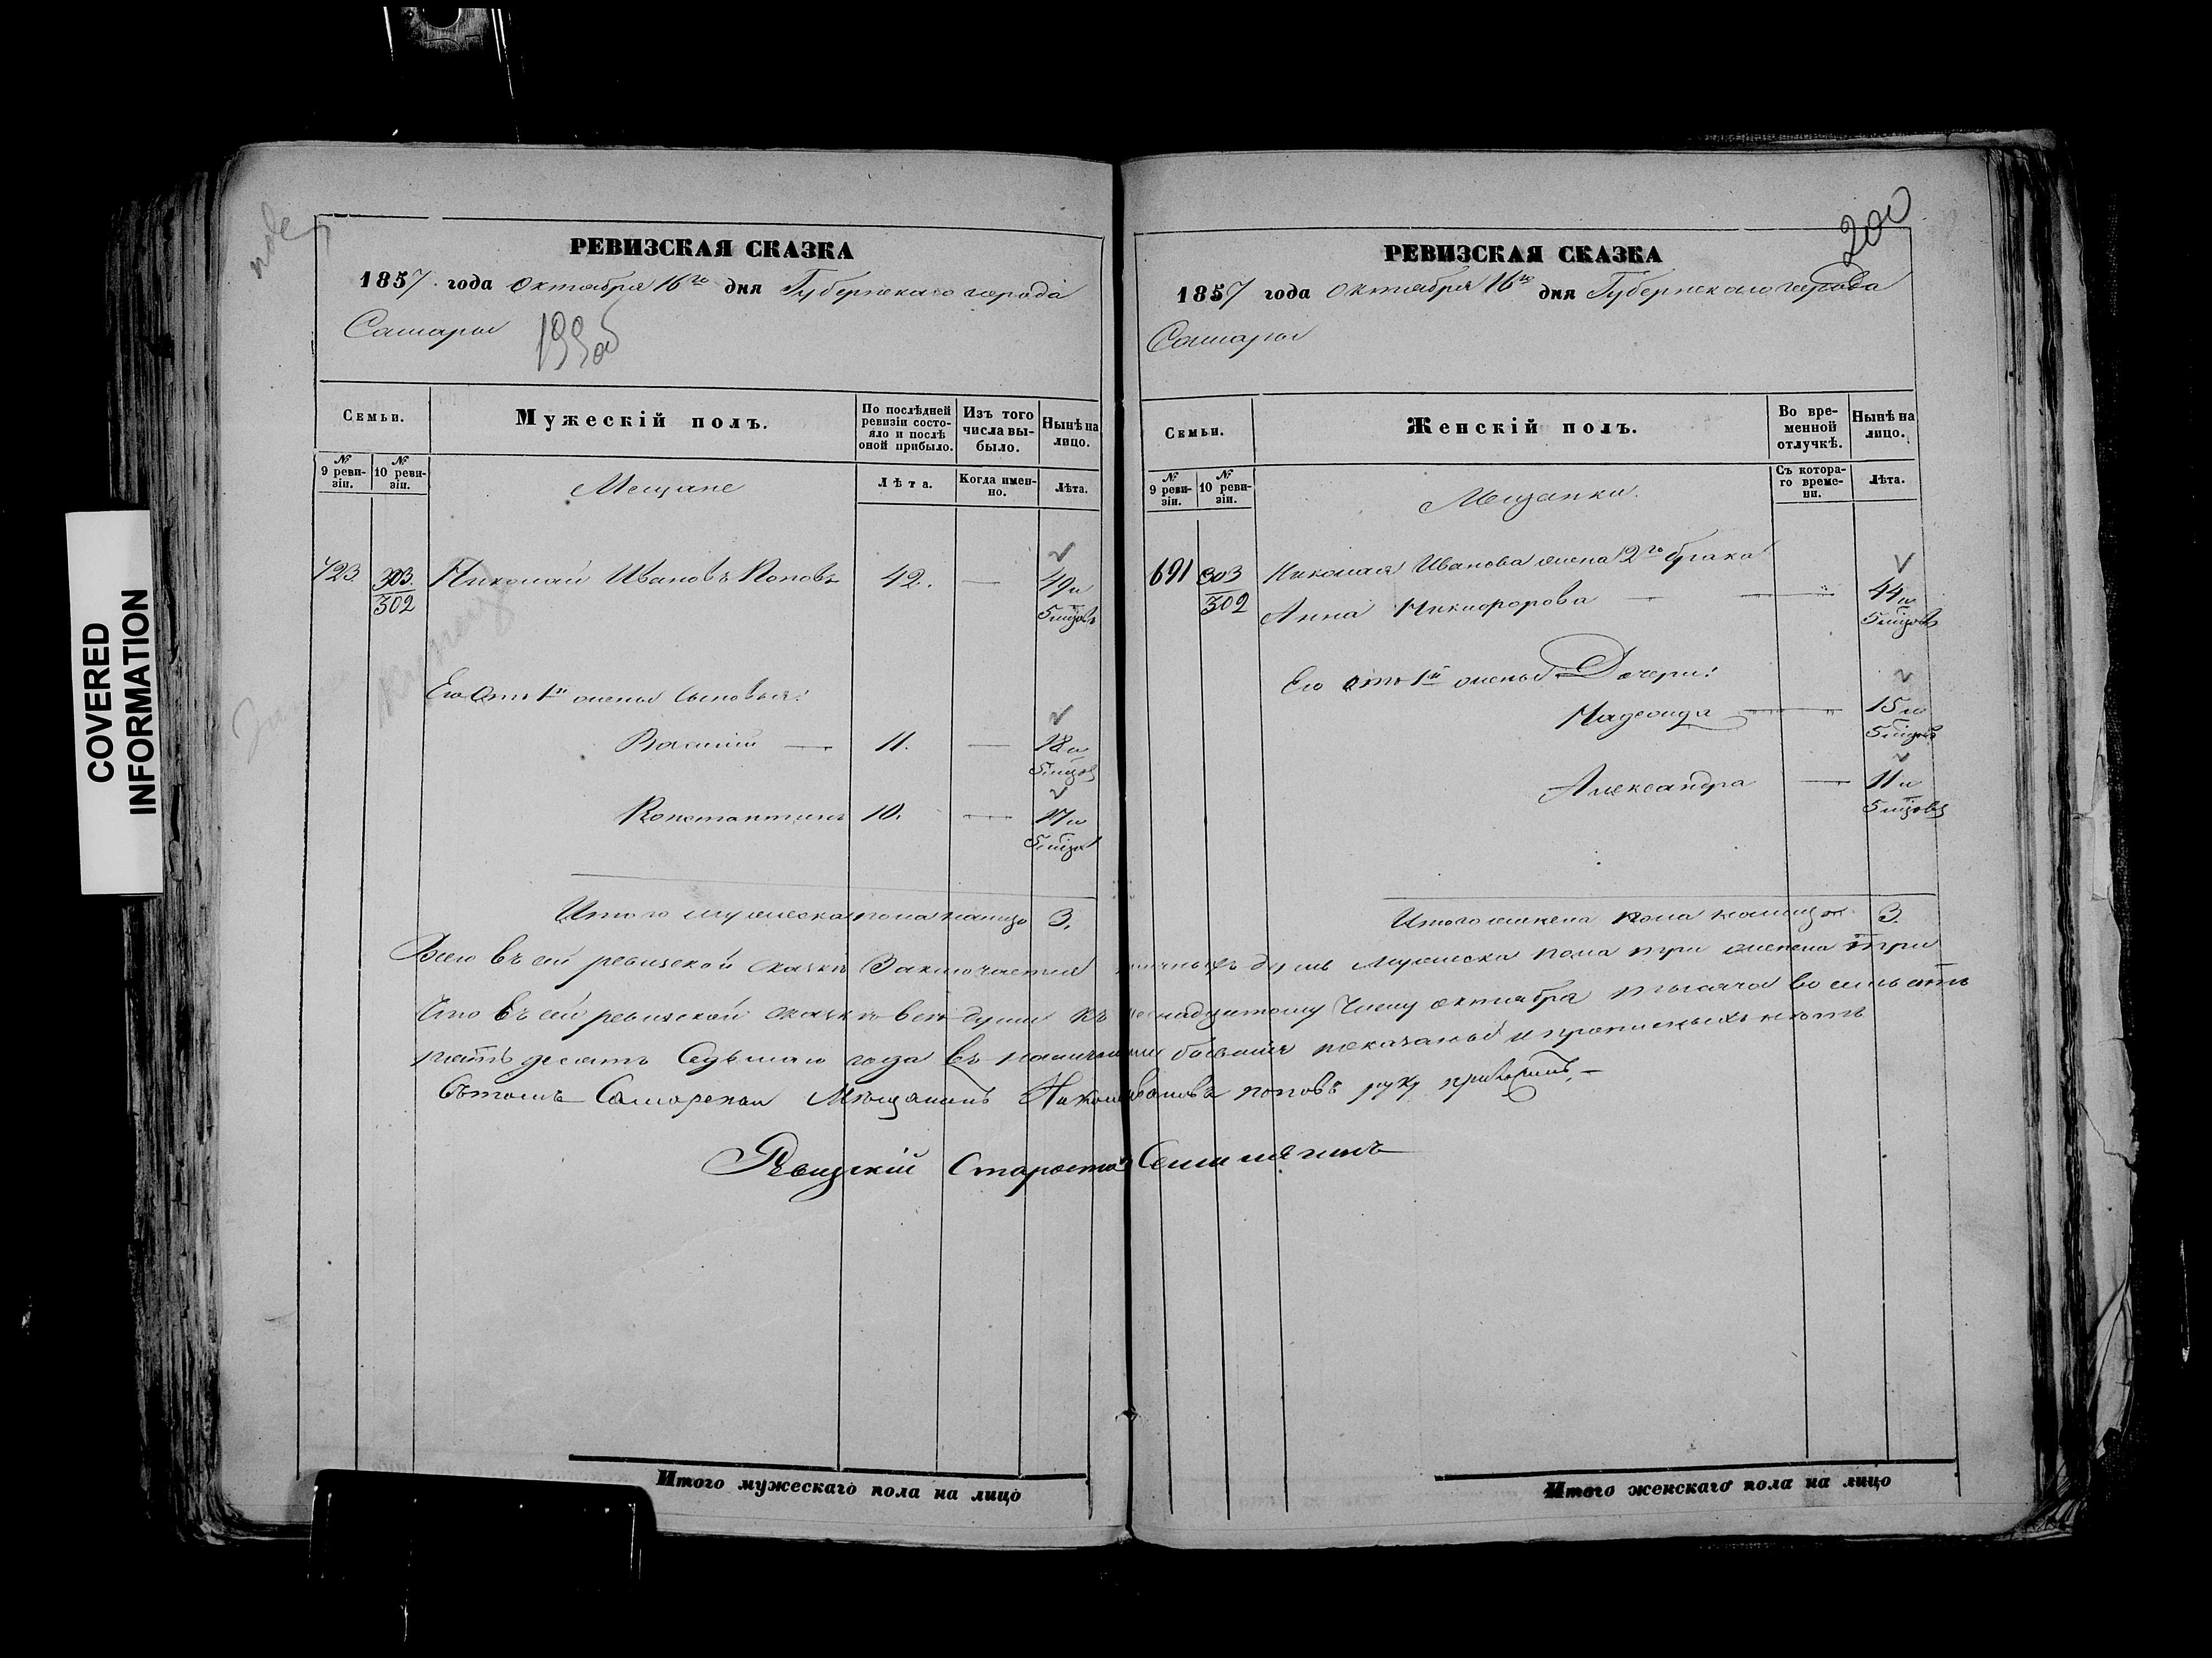 COVERED
INFORMATION
РЕВИЗСКАЯ СКАЗКА
1857 года Октября 16го дня Губернскаго города
Самары
199об
Семьи.
Мужескій полъ.
По послѣдней ревизіи состояло и послѣ оной прибыло.
Изъ того числа выбыло.
Нынѣ на лицо.
№ 9 ревизіи.
№ 10 ревизіи.
Мещане
Лѣта.
Когда именно.
Лѣта.
723. 303. Николай Ивановъ Поповъ 42. — 49 и
302 5 мцовъ
Его отъ 1й жены сыновья:
Василій — 11. — 18 и
5 мцов
Константинъ 10. — 17 и
5 мцов
Итого мужеска пола налицо 3.
РЕВИЗСКАЯ СКАЗКА
200
1857 года Октября 16го дня Губернскаго города
Самары
Семьи.
Женскій полъ.
Во временной отлучкѣ.
Нынѣ на лицо.
№ 9 ревизіи.
№ 10 ревизіи.
Мещанки.
Съ котораго времени.
Лѣта.
691 303 Николая Иванова жена 2го брака
302 Анна Никифорова — 44 и
5 мцовъ
Его отъ 1й жены Дочери:
Надежда — 15 и
5 мцовъ
Александра — 11 и
5 мцовъ
Итого женска пола налицо 3.
Всего въ сей ревизской сказкѣ Заключается личныхъ душъ мужеска пола три женска три
Что въ сей ревизской сказкѣ все души къ шестнадцатому числу октября тысяча восемьсотъ
пятьдесятъ Седьмаго года въ наличности бывшія показаны и прописныхъ нетъ
въ томъ Самарской Мѣщанинъ Николай Ивановъ поповъ руку приложилъ. —
Староста
Итого мужескаго пола на лицо
Итого женскаго пола на лицо